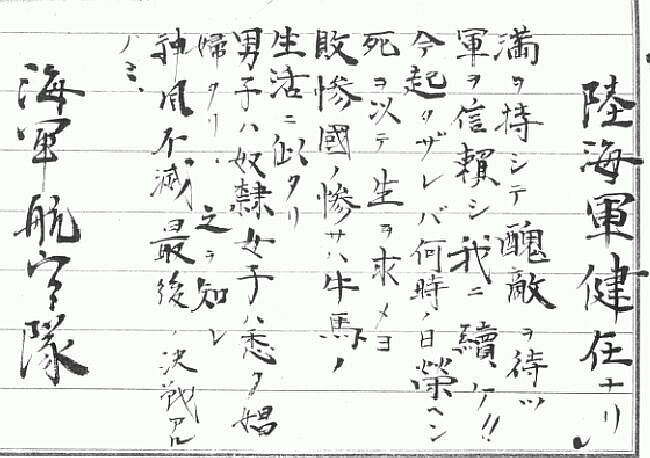 陸海軍健在ナリ
満ヲ持シテ醜敵ヲ待ツ
軍ヲ信賴シ我ニ續ケ!!
今起タザレバ何時ノ日榮ヘン
死ヲ以テ生ヲ求メヨ
敗惨國ノ惨サハ牛馬ノ
生活ニ似タリ
男子ハ奴隷女子ハ悉ク娼
婦タリ、之ヲ知レ
神風不滅最後ノ決戦アル
ノミ、
海軍航空隊